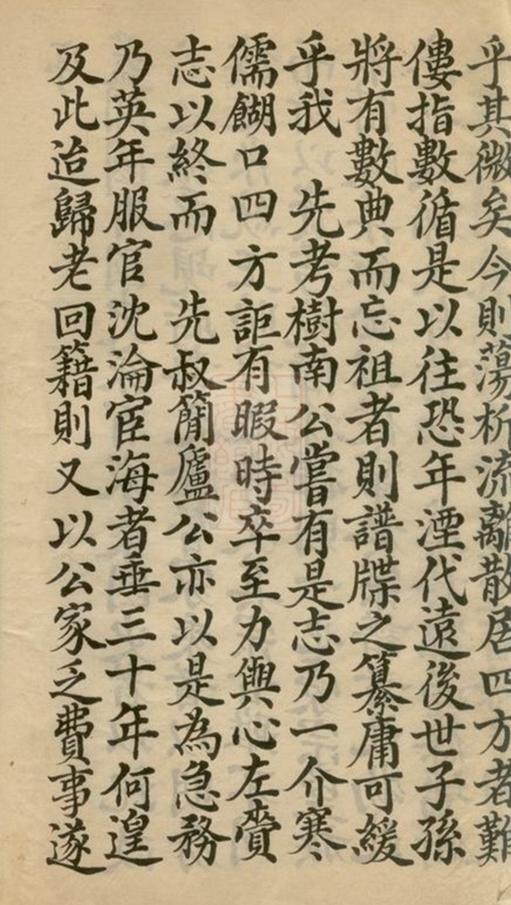 乎其微矣今則蕩析流離散居四方者難
僂指數循是以往恐年湮代遠後世子孫
將有數典而忘祖者則譜牒之纂庸可緩
乎我　先考樹南公嘗有是志乃一介寒
儒餬口四方詎有暇時卒至力與心左賫
志以終而　先叔簡廬公亦以是為急務
乃英年服官沈淪宦海者垂三十年何遑
及此迨歸老回籍則又以公家乏費事遂